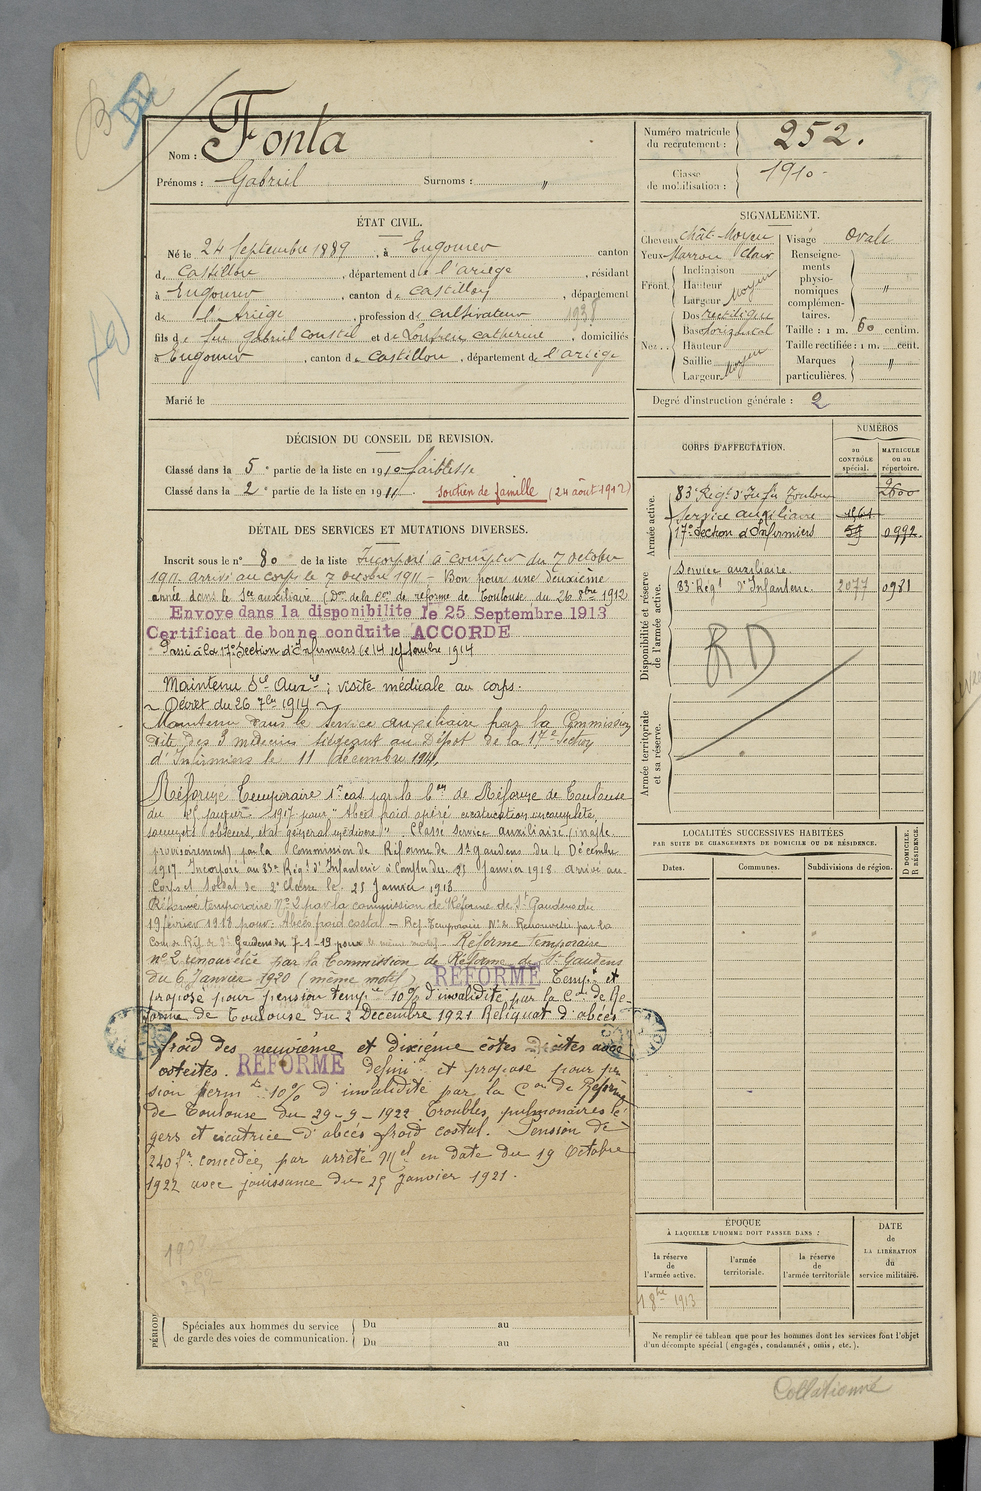 Nom : Fonta
Prénoms : Gabriel Surnoms : "
Numéro matricule du recrutement : 252.
Classe de mobilisation : 1910
ÉTAT CIVIL.
Né le 24 Septembre 1889, à Engomer canton
de Castillon, département de l'ariège, résidant
à Engomer, canton de Castillon, département
de l'Ariège, profession de cultivateur 1938
fils de feu gabriel coustal et de catherine, domiciliés
à Engomer, canton de Castillon, département de l'ariège
Marié le
SIGNALEMENT.
Cheveux chât. Moyen
Yeux Marron clair
Front. Inclinaison
Hauteur
Largeur Moyen
Nez.. Dos rectiligne
Base horizontal
Hauteur
Saillie
Largeur Moyen
Visage Ovale
Renseignements physionomiques complémentaires. "
Taille : 1 m. 60 centim.
Taille rectifiée : 1 m. cent.
Marques particulières. "
Degré d'instruction générale : 2
DÉCISION DU CONSEIL DE REVISION.
Classé dans la 5e partie de la liste en 1910 faiblesse
Classé dans la 2e partie de la liste en 1911. soutien de famille (24 août 1912)
DÉTAIL DES SERVICES ET MUTATIONS DIVERSES.
Inscrit sous le n° 80 de la liste Incorporé à compter du 7 octobre
1911 arrivé au corps le 7 octobre 1911 – Bon pour une deuxième
année dans le Ser auxiliaire (Don de la Con de réforme de Toulouse du 26 9bre 1912)
Envoye dans la disponibilite le 25 Septembre 1913
Certificat de bonne conduite ACCORDE
Passé à la 17e Section d'Infirmiers le 14 septembre 1914
Maintenu Sce Auxre ; visite médicale au corps.
~ Décret du 26 7bre 1914 ~
Maintenu dans le service auxiliaire par la Commission
dite des 3 médecins siégeant au Dépôt de la 17e Section
d'Infirmiers le 11 décembre 1914.
Réformé Temporaire 1er cas par la Con de Réforme de Toulouse
du janvier 1917 pour "Abcès froid opéré cicatrisation incomplète,
sommets obscurs, état général médiocre". Classé service auxiliaire (inapte
provisoirement) par la Commission de Réforme de St gaudens du 4 Décembre
1917. Incorporé au 83e Régt d'Infanterie à compter du 25 Janvier 1918 arrivé au
Corps et soldat de 2e classe le 25 Janvier 1918
Réformé temporaire N° 2 par la commission de Réforme de St Gaudens du
19 février 1918 pour : Abcès froid costal – Réf. Temporaire N° 2 Renouvelée par la
Com de Réf. de St Gaudens du 7-1-19 pour le même motif – Réforme temporaire
n° 2 renouvelée par la Commission de Réforme de St Gaudens
du 6 Janvier 1920 (même motif) REFORMÉ Temp.t et
proposé pour pension tempre 10% d'invalidité par la Con de Re-
forme de Toulouse du 2 Décembre 1921 Reliquat d'abcès
froid des neuvième et dixième côtes Droites avec
ostéites. REFORMÉ définif et proposé pour pen
sion permte 10% d'invalidité par la Con de Réforme
de Toulouse du 29-9-1922 Troubles pulmonaires lé-
gers et cicatrice d'abcès froid costal. Pension de
240 fr. concédée par arrêté Mel en date du 19 Octobre
1922 avec jouissance du 25 Janvier 1921.
PÉRIODE
Spéciales aux hommes du service de garde des voies de communication.
Du au
Du au
CORPS D'AFFECTATION.
NUMÉROS
DU CONTRÔLE spécial.
MATRICULE ou au répertoire.
Armée active.
83e Régt d'Infie Toulouse 2600
Service auxiliaire
17e Section d'Infirmiers 59 0992
Disponibilité et réserve de l'armée active.
Service auxiliaire.
83e Régt d'Infanterie 2077 0981
RD
Armée territoriale et sa réserve.
LOCALITÉS SUCCESSIVES HABITÉES
PAR SUITE DE CHANGEMENTS DE DOMICILE OU DE RÉSIDENCE.
Dates. Communes. Subdivisions de région. D DOMICILE. R RÉSIDENCE.
ÉPOQUE
À LAQUELLE L'HOMME DOIT PASSER DANS :
la réserve de l'armée active.
l'armée territoriale.
la réserve de l'armée territoriale
DATE de LA LIBÉRATION du service militaire.
1 8bre 1913
Ne remplir ce tableau que pour les hommes dont les services font l'objet
d'un décompte spécial (engagés, condamnés, omis, etc.).
Collationné